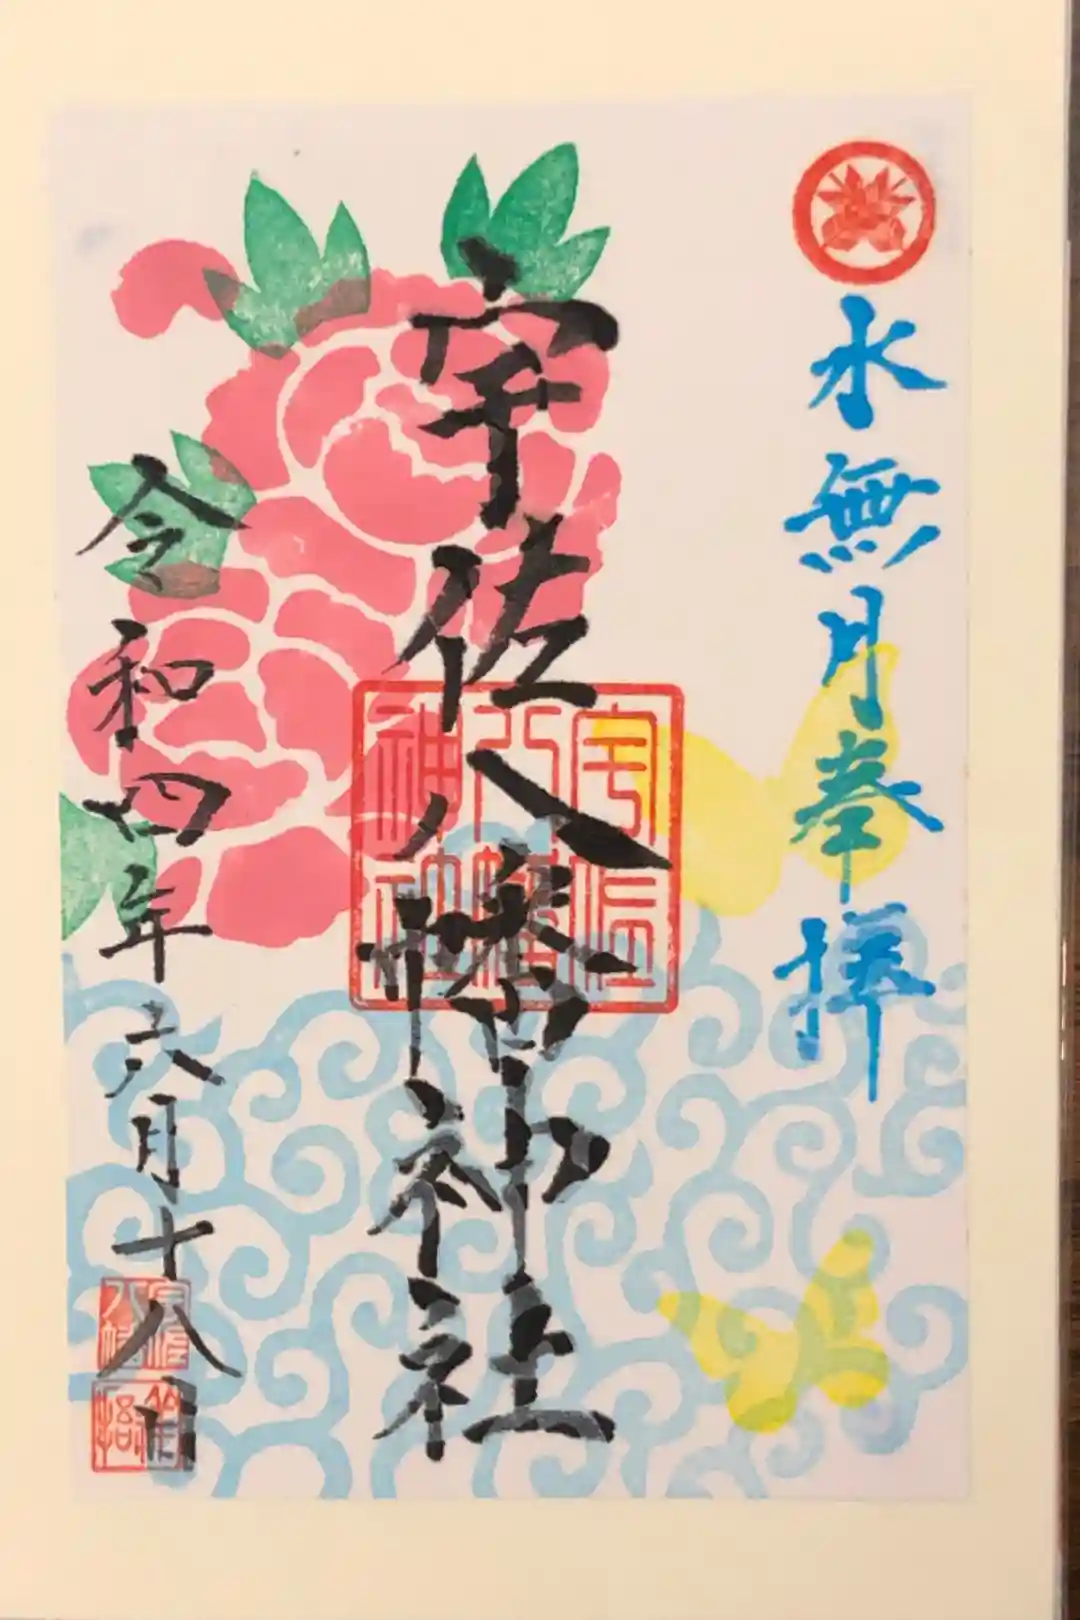 水無月奉拝
宇佐八幡神社
宇佐
八幡
神社
令和四年六月十八日
宇佐
八幡